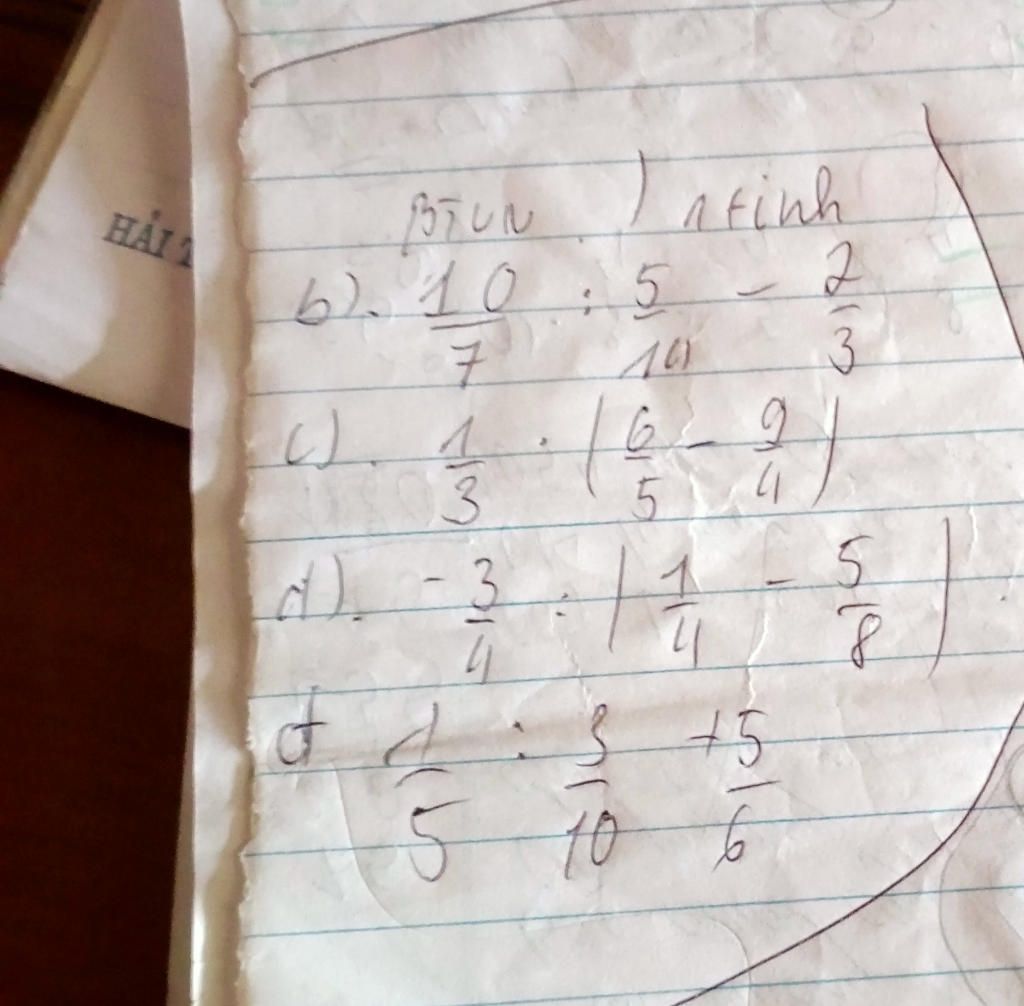 HẢI T
BTVN ) 1 tinh
b). 10/7 : 5/14 - 2/3
c). 1/3 : ( 6/5 - 9/4 )
d). -3/4 : ( 1/4 - 5/8 )
đ 1/5 : 3/10 + 5/6